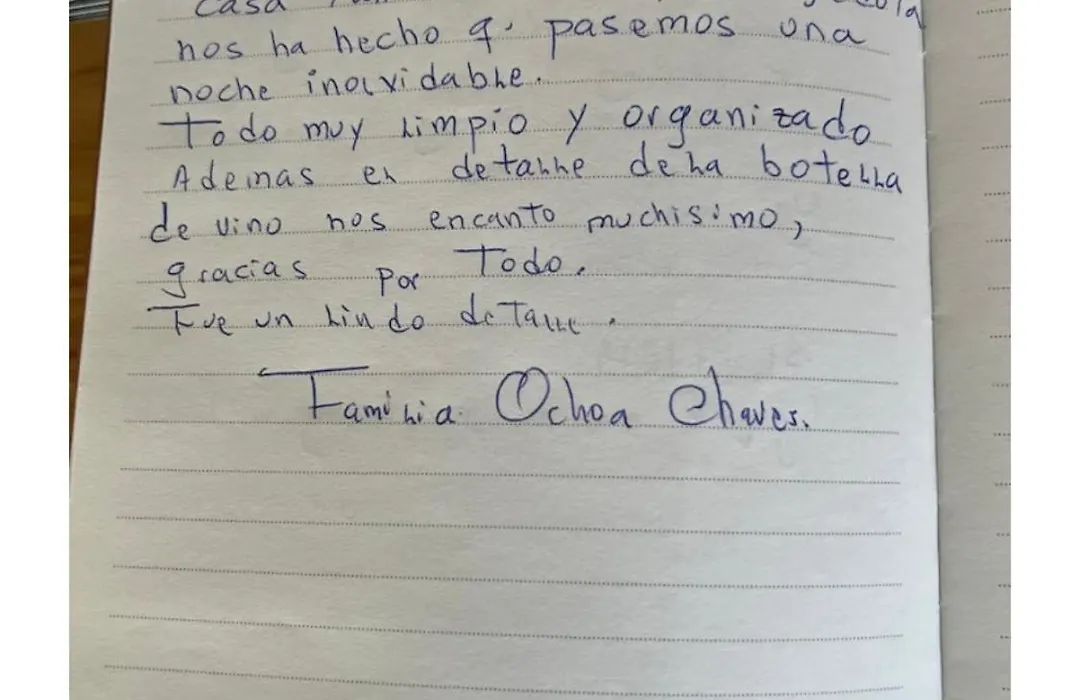 casa
nos ha hecho q. pasemos una
noche inolvidable.
Todo muy limpio y organizado
Ademas el detalle de la botella
de vino nos encanto muchisimo,
gracias por Todo.
Fue un lindo detalle.
Familia Ochoa Chaves.